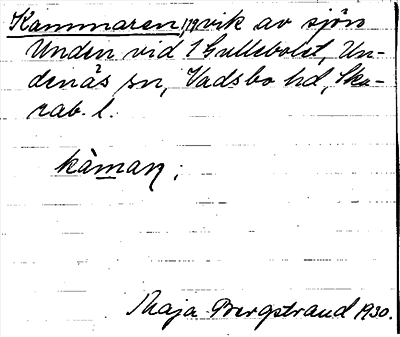 Kammaren, vik av sjön
Unden vid 1 Gullebolet, Un-
denäs sn, Vadsbo hd, Ska-
rab. l.
kàmaɳ;
Maja Bergstrand 1930.